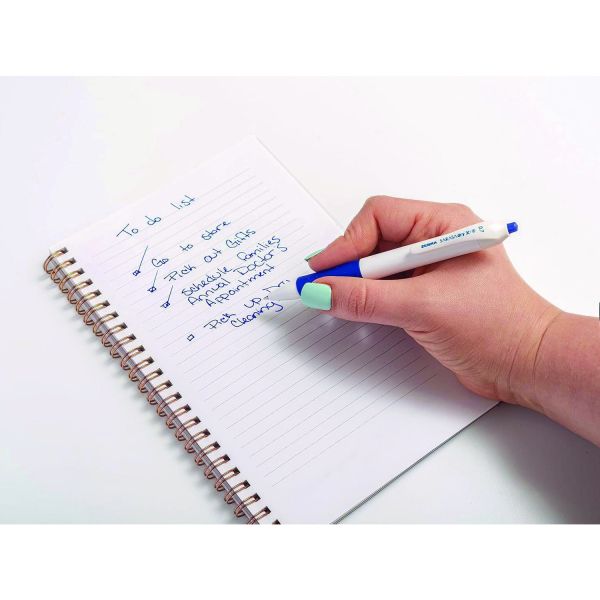 To do list
Go to store
Pick out Gifts
Schedule Families
Annual Doctors
Appointment
Pick up
Cleaning
ZEBRA SARASA